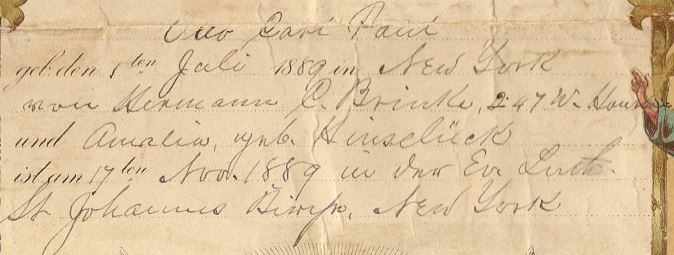 Otto Carl Paul
geb. den 5ten Juli 1889 in New York
von Hermann C. Brinke, 247 W. Houston
und Amalia, geb.
ist am 17ten Nov. 1889 in der Ev. Luth.
St Johannes Kirche, New York